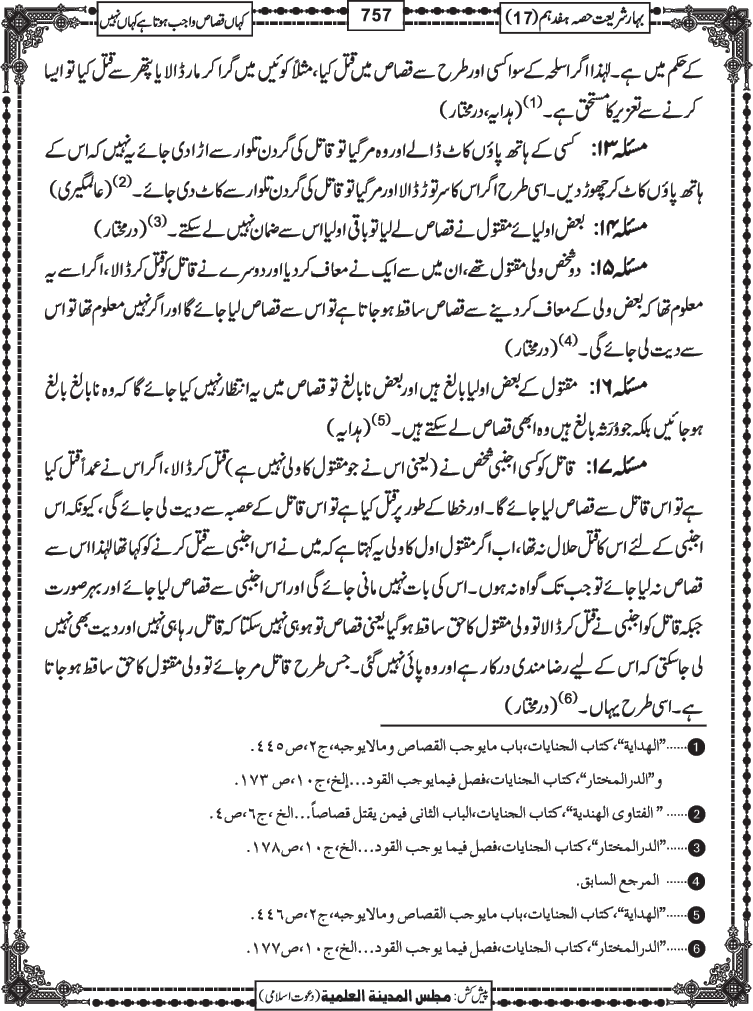 بہار شریعت حصہ ہفدہم (17)
757
کہاں قصاص واجب ہوتا ہے کہاں نہیں
کے حکم میں ہے۔ لہٰذا اگر اسلحہ کے سوا کسی اور طرح سے قصاص میں قتل کیا، مثلاً کوئیں میں گرا کر مار ڈالا یا پتھر سے قتل کیا تو ایسا
کرنے سے تعزیر کا مستحق ہے۔(1) (ہدایہ، درمختار)
مسئلہ ۱۳: کسی کے ہاتھ پاؤں کاٹ ڈالے اور وہ مر گیا تو قاتل کی گردن تلوار سے اڑا دی جائے یہ نہیں کہ اس کے
ہاتھ پاؤں کاٹ کر چھوڑ دیں۔ اسی طرح اگر اس کا سر توڑ ڈالا اور مر گیا تو قاتل کی گردن تلوار سے کاٹ دی جائے۔(2) (عالمگیری)
مسئلہ ۱۴: بعض اولیائے مقتول نے قصاص لے لیا تو باقی اولیا اس سے ضمان نہیں لے سکتے۔(3) (درمختار)
مسئلہ ۱۵: دو شخص ولی مقتول تھے، ان میں سے ایک نے معاف کر دیا اور دوسرے نے قاتل کو قتل کر ڈالا، اگر اسے یہ
معلوم تھا کہ بعض ولی کے معاف کر دینے سے قصاص ساقط ہو جاتا ہے تو اس سے قصاص لیا جائے گا اور اگر نہیں معلوم تھا تو اس
سے دیت لی جائے گی۔(4) (درمختار)
مسئلہ ۱۶: مقتول کے بعض اولیا بالغ ہیں اور بعض نابالغ تو قصاص میں یہ انتظار نہیں کیا جائے گا کہ وہ نابالغ بالغ
ہو جائیں بلکہ جو وُرَثہ بالغ ہیں وہ ابھی قصاص لے سکتے ہیں۔(5) (ہدایہ)
مسئلہ ۱۷: قاتل کو کسی اجنبی شخص نے (یعنی اس نے جو مقتول کا ولی نہیں ہے) قتل کر ڈالا، اگر اس نے عمداً قتل کیا
ہے تو اس قاتل سے قصاص لیا جائے گا۔ اور خطا کے طور پر قتل کیا ہے تو اس قاتل کے عصبہ سے دیت لی جائے گی، کیونکہ اس
اجنبی کے لئے اس کا قتل حلال نہ تھا، اب اگر مقتول اول کا ولی یہ کہتا ہے کہ میں نے اس اجنبی سے قتل کرنے کو کہا تھا لہٰذا اس سے
قصاص نہ لیا جائے تو جب تک گواہ نہ ہوں۔ اس کی بات نہیں مانی جائے گی اور اس اجنبی سے قصاص لیا جائے اور بہر صورت
جبکہ قاتل کو اجنبی نے قتل کر ڈالا تو ولی مقتول کا حق ساقط ہو گیا یعنی قصاص تو ہو ہی نہیں سکتا کہ قاتل رہا ہی نہیں اور دیت بھی نہیں
لی جا سکتی کہ اس کے لیے رضا مندی درکار ہے اور وہ پائی نہیں گئی۔ جس طرح قاتل مر جائے تو ولی مقتول کا حق ساقط ہو جاتا
ہے۔ اسی طرح یہاں۔(6) (درمختار)
1......”الهداية“، كتاب الجنايات، باب مايوجب القصاص ومالايوجبه، ج٢، ص٤٤٥.
و”الدرالمختار“، كتاب الجنايات، فصل فيمايوجب القود...إلخ، ج١٠، ص ١٧٣.
2......”الفتاوى الهندية“، كتاب الجنايات، الباب الثانى فيمن يقتل قصاصاً...الخ، ج٦، ص٤.
3......”الدرالمختار“، كتاب الجنايات، فصل فيما يوجب القود...الخ، ج١٠، ص١٧٨.
4...... المرجع السابق.
5......”الهداية“، كتاب الجنايات، باب مايوجب القصاص ومالايوجبه، ج٢، ص٤٤٦.
6......”الدرالمختار“، كتاب الجنايات، فصل فيما يوجب القود...الخ، ج١٠، ص١٧٧.
پیش کش: مجلس المدينة العلمية (دعوت اسلامی)